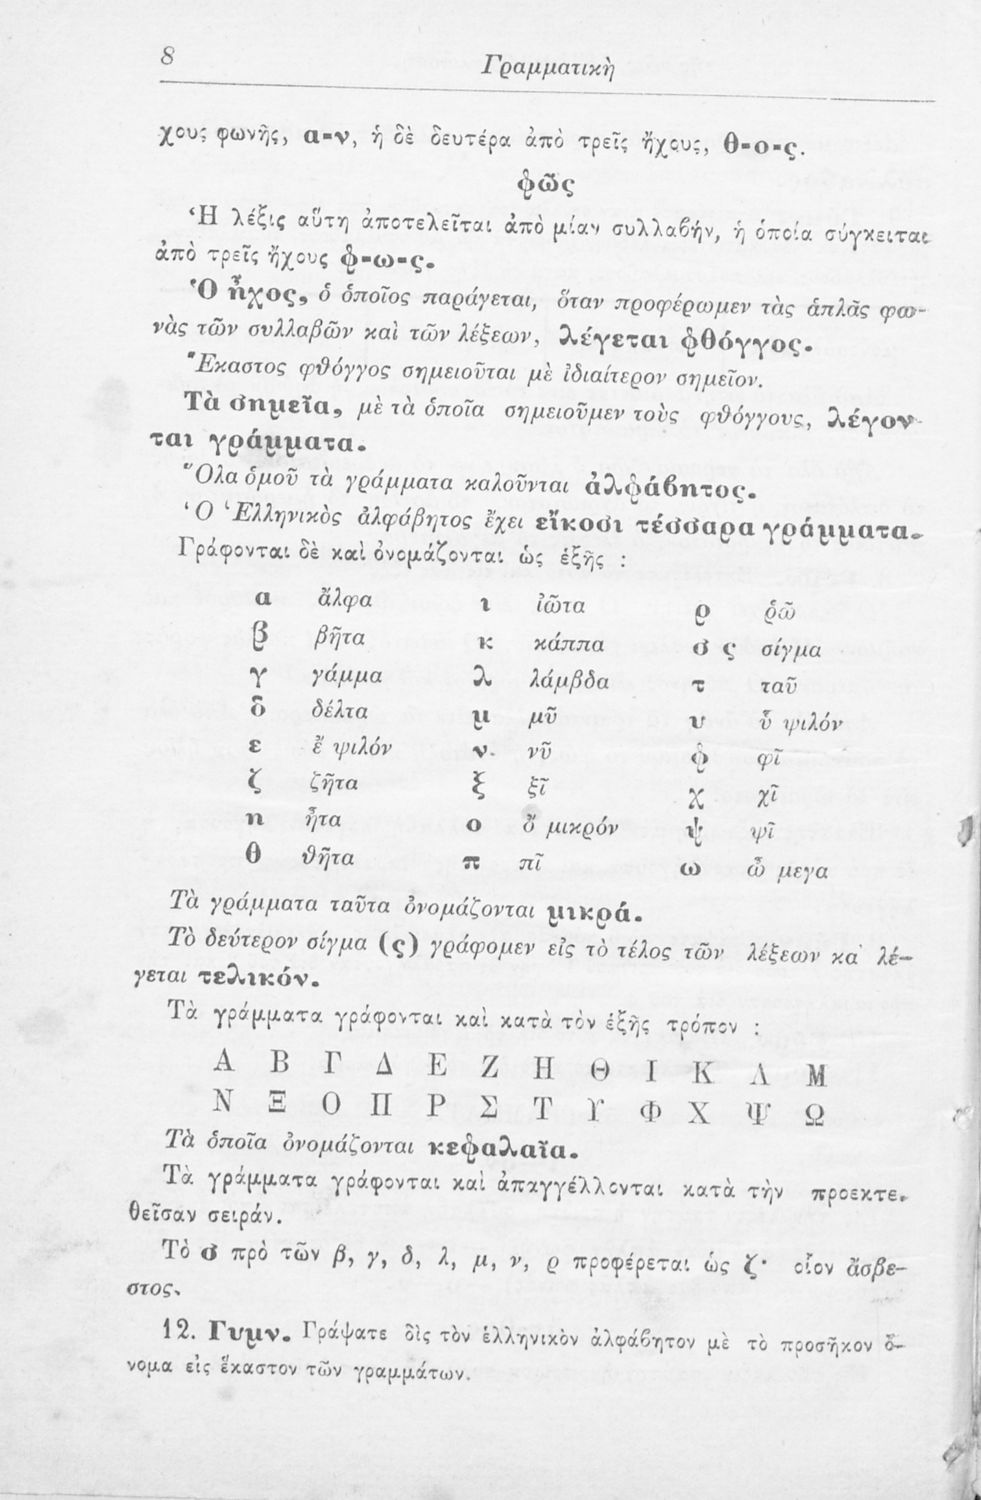 8
Γραμματικὴ
χους φωνῆς, α-ν, ἡ δὲ δευτέρα ἀπὸ τρεῖς ἤχους, θ-ο-ς.
φῶς
Ἡ λέξις αὕτη ἀποτελεῖται ἀπὸ μίαν συλλαβήν, ἡ ὁποία σύγκειται
ἀπὸ τρεῖς ἤχους φ-ω-ς.
Ὁ ἦχος, ὁ ὁποῖος παράγεται, ὅταν προφέρωμεν τὰς ἁπλᾶς φω-
νὰς τῶν συλλαβῶν καὶ τῶν λέξεων, λέγεται φθόγγος.
Ἕκαστος φθόγγος σημειοῦται μὲ ἰδιαίτερον σημεῖον.
Τὰ σημεῖα, μὲ τὰ ὁποῖα σημειοῦμεν τοὺς φθόγγους, λέγον-
ται γράμματα.
Ὅλα ὁμοῦ τὰ γράμματα καλοῦνται ἀλφάβητος.
Ὁ Ἑλληνικὸς ἀλφάβητος ἔχει εἴκοσι τέσσαρα γράμματα.
Γράφονται δὲ καὶ ὀνομάζονται ὡς ἑξῆς :
α ἄλφα ι ἰῶτα ρ ῥῶ
β βῆτα κ κάππα σ ς σίγμα
γ γάμμα λ λάμβδα τ ταῦ
δ δέλτα μ μῦ υ ὖ ψιλόν
ε ἒ ψιλόν ν νῦ φ φῖ
ζ ζῆτα ξ ξῖ χ χῖ
η ἦτα ο ὂ μικρόν ψ ψῖ
θ θῆτα π πῖ ω ὦ μεγα
Τὰ γράμματα ταῦτα ὀνομάζονται μικρά.
Τὸ δεύτερον σίγμα (ς) γράφομεν εἰς τὸ τέλος τῶν λέξεων κα λέ-
γεται τελικόν.
Τὰ γράμματα γράφονται καὶ κατὰ τὸν ἑξῆς τρόπον :
Α Β Γ Δ Ε Ζ Η Θ Ι Κ Λ Μ
Ν Ξ Ο Π Ρ Σ Τ Υ Φ Χ Ψ Ω
Τὰ ὁποῖα ὀνομάζονται κεφαλαῖα.
Τὰ γράμματα γράφονται καὶ ἀπαγγέλλονται κατὰ τὴν προεκτε-
θεῖσαν σειράν.
Τὸ σ πρὸ τῶν β, γ, δ, λ, μ, ν, ρ προφέρεται ὡς ζ· οἷον ἄσβε-
στος.
12. Γυμν. Γράψατε δὶς τὸν ἑλληνικὸν ἀλφάβητον μὲ τὸ προσῆκον ὄ-
νομα εἰς ἕκαστον τῶν γραμμάτων.